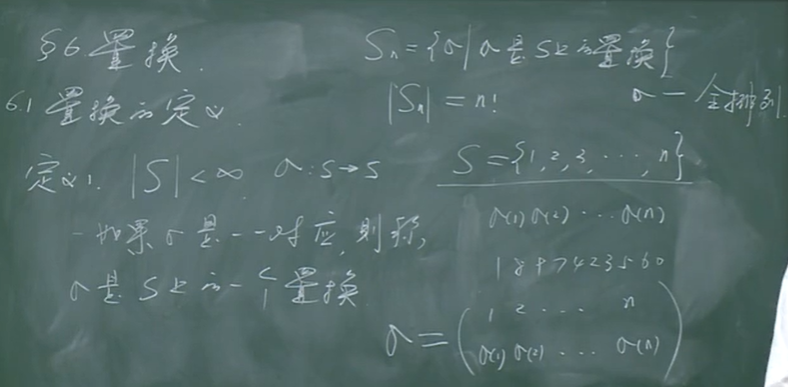 §6 置换.
6.1 置换的定义.
定义1. |S|<∞ σ:S→S
如果σ是一一对应,则称,
σ是S上的一个置换
Sₙ={σ|σ是S上的置换}
|Sₙ|=n! σ—全排列.
S={1,2,3,⋯,n}
σ(1)σ(2)⋯σ(n)
σ=(1 2 ⋯ n
σ(1) σ(2) ⋯ σ(n))